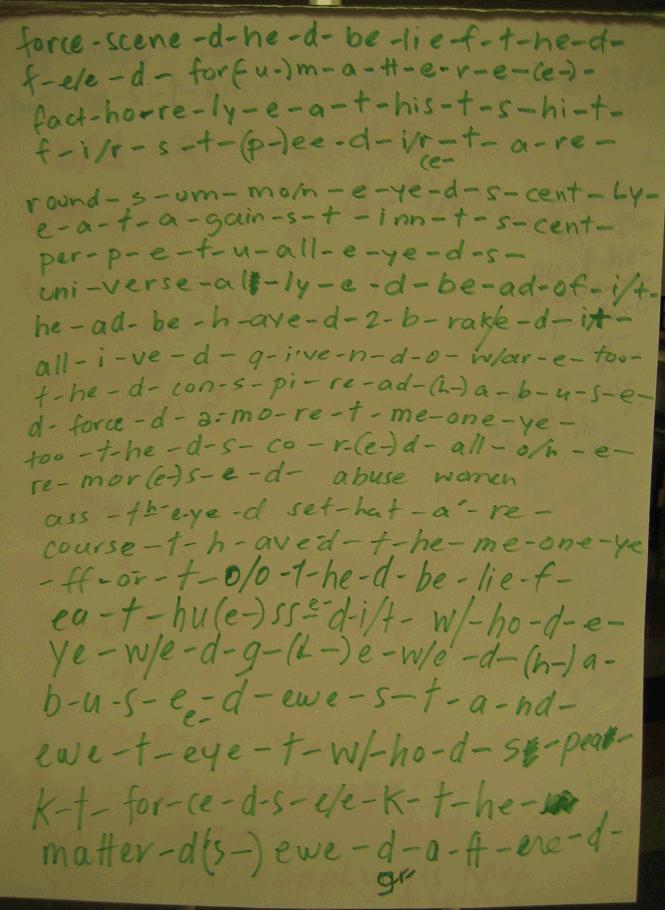 force-scene-d-he-d-be-lie-f-t-he-d-
f-e/e-d- for(-u-)m-a-tt-e-r-e-(e-)-
fact-ho-re-ly-e-a-t-his-t-s-hi-t-
f-i/r-s-t-(p-)ee-d-i/r-t-a-re-
(e-
round-s-um-mo/n-e-ye-d-s-cent-Ly-
e-a-t-a-gain-s-t-inn-t-s-cent-
per-p-e-t-u-all-e-ye-d-s-
uni-verse-al-ly-e-d-be-ad-of-i/t-
he-ad-be-h-ave-d-2-b-rak/e-d-it-
all-i-ve-d-g-i've-n-d-o-w/ar-e-too-
t-he-d-con-s-pi-re-ad-(h-)a-b-u-s-e-
d-force-d-a-mo-re-t-me-one-ye-
too-t-he-d-s-co-r-(e-)d-all-o/n-e-
re-mor(e-)s-e-d- abuse women
ass-th-eye-d set-hat-a'-re-
course-t-h-ave'd-t-he-me-one-ye
-ff-or-t-o/o-t-he-d-be-lie-f-
ea-t-hu(e-)ss-e-d-i/t- w/-ho-d-e-
ye-w/e-d-g-(L-)e-w/e-d-(h-)a-
b-u-s-e-d-ewe-s-t-a-nd-
e-
ewe-t-eye-t-w/-ho-d- -pea-
k-t-for-ce-d-s-e/e-k-t-he-
matter-d(s-)ewe-d-a-ft-ere-d-
gr